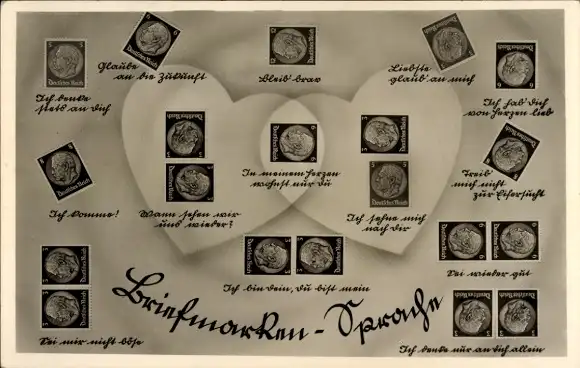 Glaube
an die Zukunft
Bleib' brav
Liebste
glaub' an mich
Ich denke
stets an Dich
Ich hab' Dich
von Herzen lieb
In meinem Herzen
wohnst nur Du
Treib'
mich nicht
zur Eifersucht
Ich komme!
Wann sehen wir
uns wieder?
Ich sehne mich
nach dir
Sei wieder gut
Ich bin Dein, Du bist mein
Briefmarken-Sprache
Sei mir nicht böse
Ich denke nur an dich allein
Deutsches Reich
Deutsches Reich
Deutsches Reich
Deutsches Reich
Deutsches Reich
Deutsches Reich